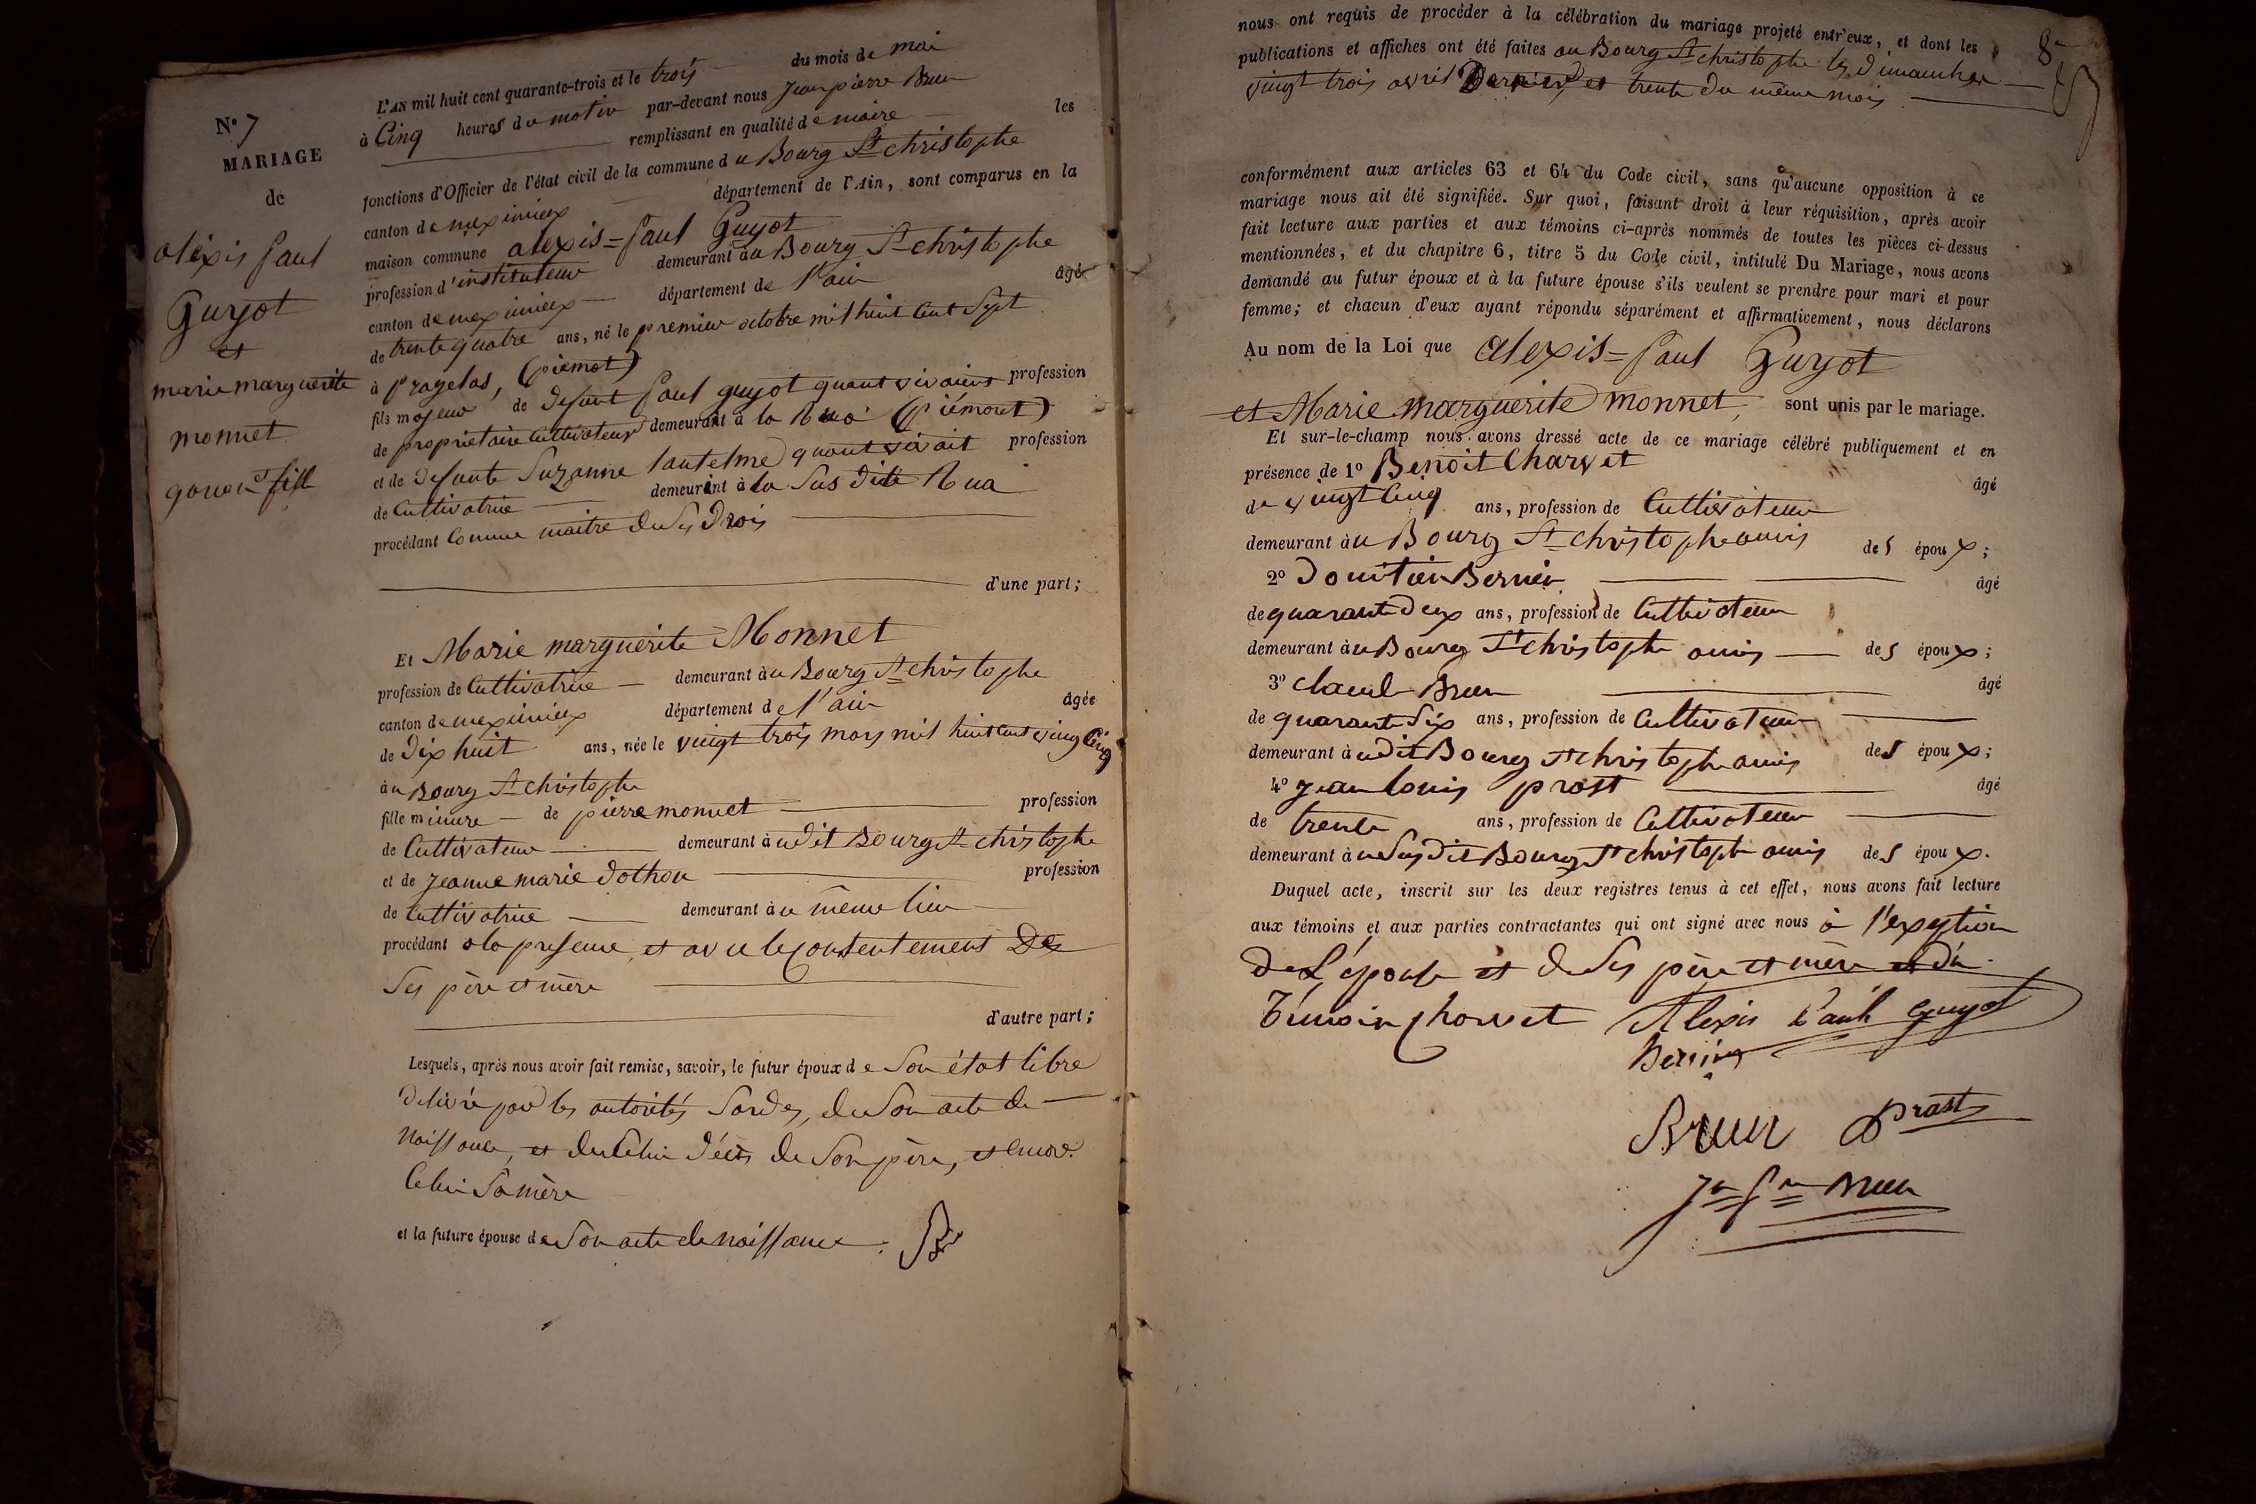 N° 7
MARIAGE
de
alexis paul
Guyot
et
marie marguerite
monnet
L'AN mil huit cent quarante-trois et le trois du mois de mai
à Cinq heures du matin par-devant nous jean pierre Brun
remplissant en qualité de maire les
fonctions d'Officier de l'état civil de la commune du Bourg St christophe
canton de meximieux département de l'Ain, sont comparus en la
maison commune alexis=paul Guyot
profession d'instituteur demeurant au Bourg St christophe
canton de meximieux département de l'ain âgé
de trente quatre ans, né le premier octobre mil huit cent sept
à pragelas, (piémot)
fils majeur de defunt paul guyot quant vivaient profession
de propriétaire Cultivateur demeurant à la Rua (piémont)
et de defunte Suzanne lantelme quant vivait profession
de Cultivatrice demeurant à la Sus dite Rua
procédant Comme maitre de Ses Drois
d'une part;
Et Marie marguerite Monnet
profession de Cultivatrice demeurant au Bourg St christophe
canton de meximieux département de l'ain âgée
de Dix huit ans, née le vingt trois mars mil huit cent ving Cinq
au Bourg St christophe
fille mineure de pierre monnet profession
de Cultivateur demeurant à udit Bourg St christophe
et de jeanne marie dothou profession
de Cultivatrice demeurant à u même lieu
procédant à la presence, et avec le Consentement De
Ses père et mère
d'autre part;
Lesquels, après nous avoir fait remise, savoir, le futur époux de Son état libre
delivré par les autorités Sardes, de Son acte de
Naissance, et de Celui décès de Son père, et encore
Celui Sa mère
et la future épouse de Son acte de naissance.
8
nous ont requis de procéder à la célébration du mariage projeté entr'eux, et dont les
publications et affiches ont été faites au Bourg St christophe les dimanches
vingt trois avril Dernier, et trente du même mois
conformément aux articles 63 et 64 du Code civil, sans qu'aucune opposition à ce
mariage nous ait été signifiée. Sur quoi, faisant droit à leur réquisition, après avoir
fait lecture aux parties et aux témoins ci-après nommés de toutes les pièces ci-dessus
mentionnées, et du chapitre 6, titre 5 du Code civil, intitulé Du Mariage, nous avons
demandé au futur époux et à la future épouse s'ils veulent se prendre pour mari et pour
femme; et chacun d'eux ayant répondu séparément et affirmativement, nous déclarons
Au nom de la Loi que alexis=paul Guyot
et Marie marguerite monnet, sont unis par le mariage.
Et sur-le-champ nous avons dressé acte de ce mariage célébré publiquement et en
présence de 1° Benoit Charvet âgé
de vingt Cinq ans, profession de Cultivateur
demeurant à u Bourg St christophe amis des époux;
2° Domitien Bernin âgé
de quarante Deux ans, profession de Cultivateur
demeurant à u Bourg St christophe amis des époux;
3° Claude Brun âgé
de quarante Six ans, profession de Cultivateur
demeurant à udit Bourg St christophe amis des époux;
4° jean louis prost âgé
de trente ans, profession de Cultivateur
demeurant à u Susdit Bourg St christophe amis des époux.
Duquel acte, inscrit sur les deux registres tenus à cet effet, nous avons fait lecture
aux témoins et aux parties contractantes qui ont signé avec nous à l'exeption
de L'épouse et de Ses père et mère et du
témoin Charvet Alexis Paul Guyot
Bernin
Brun Prost
Jn Pre Brun